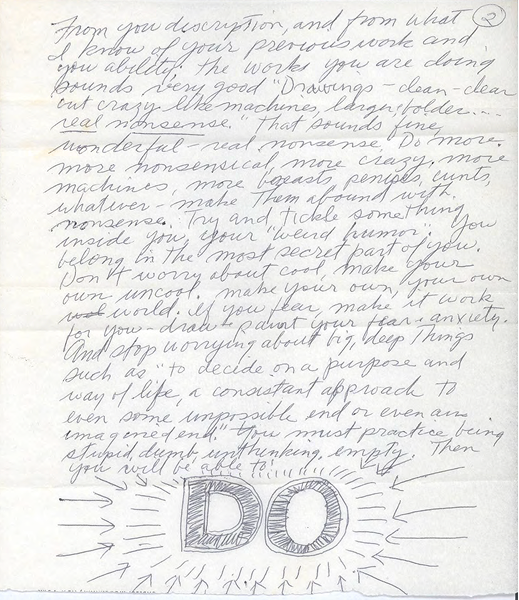 2
From you description, and from what
I know of your previous work and
you ability; the works you are doing
sounds very good "Drawings - clean - clear
but crazy like machines, larger, bolder....
real nonsense." That sounds fine,
wonderful - real nonsense. Do more.
more nonsensical, more crazy, more
machines, more breasts, penises, cunts,
whatever - make them abound with
nonsense. Try and tickle something
inside you, your "weird humor." You
belong in the most secret part of you.
Don't worry about cool, make your
own uncool. make your own, your own
world. If you fear, make it work
for you - draw & paint your fear & anxiety.
And stop worrying about big, deep things
such as "to decide on a purpose and
way of life, a consistant approach to
even some impossible end or even an
imagined end." You must practice being
stupid, dumb, unthinking, empty. Then
you will be able to!
DO